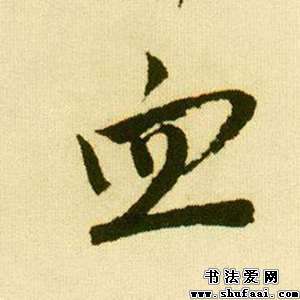 血
书法爱网
www.shufaai.com